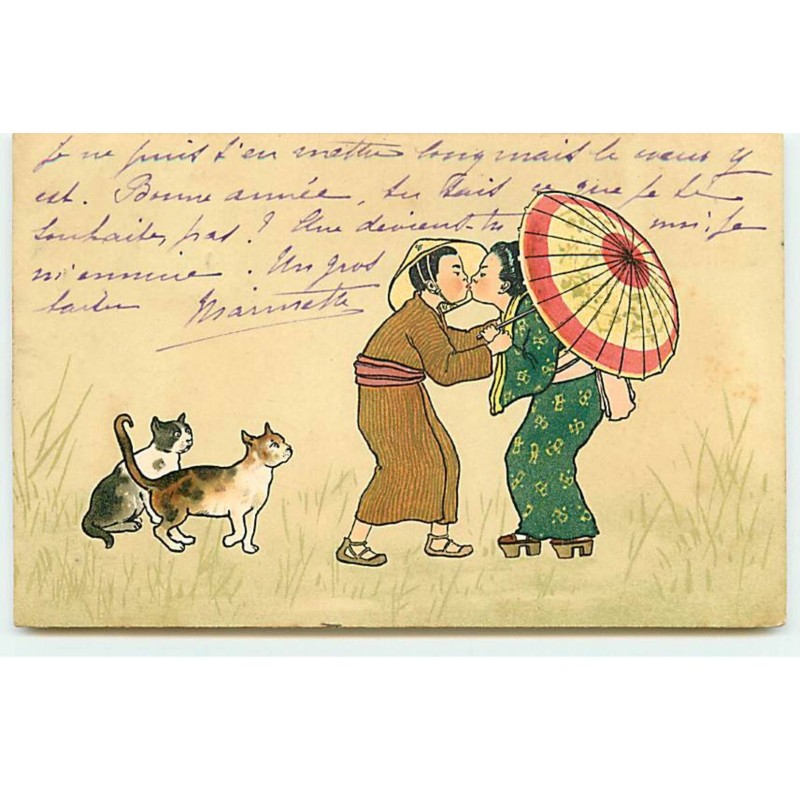 Je ne puis t'en mettre long mais le cœur y
est. Bonne année, tu sais ce que je te
souhaite, pas ? Que devient-tu moi, je
m'ennuie. Un gros
baiser Marinette